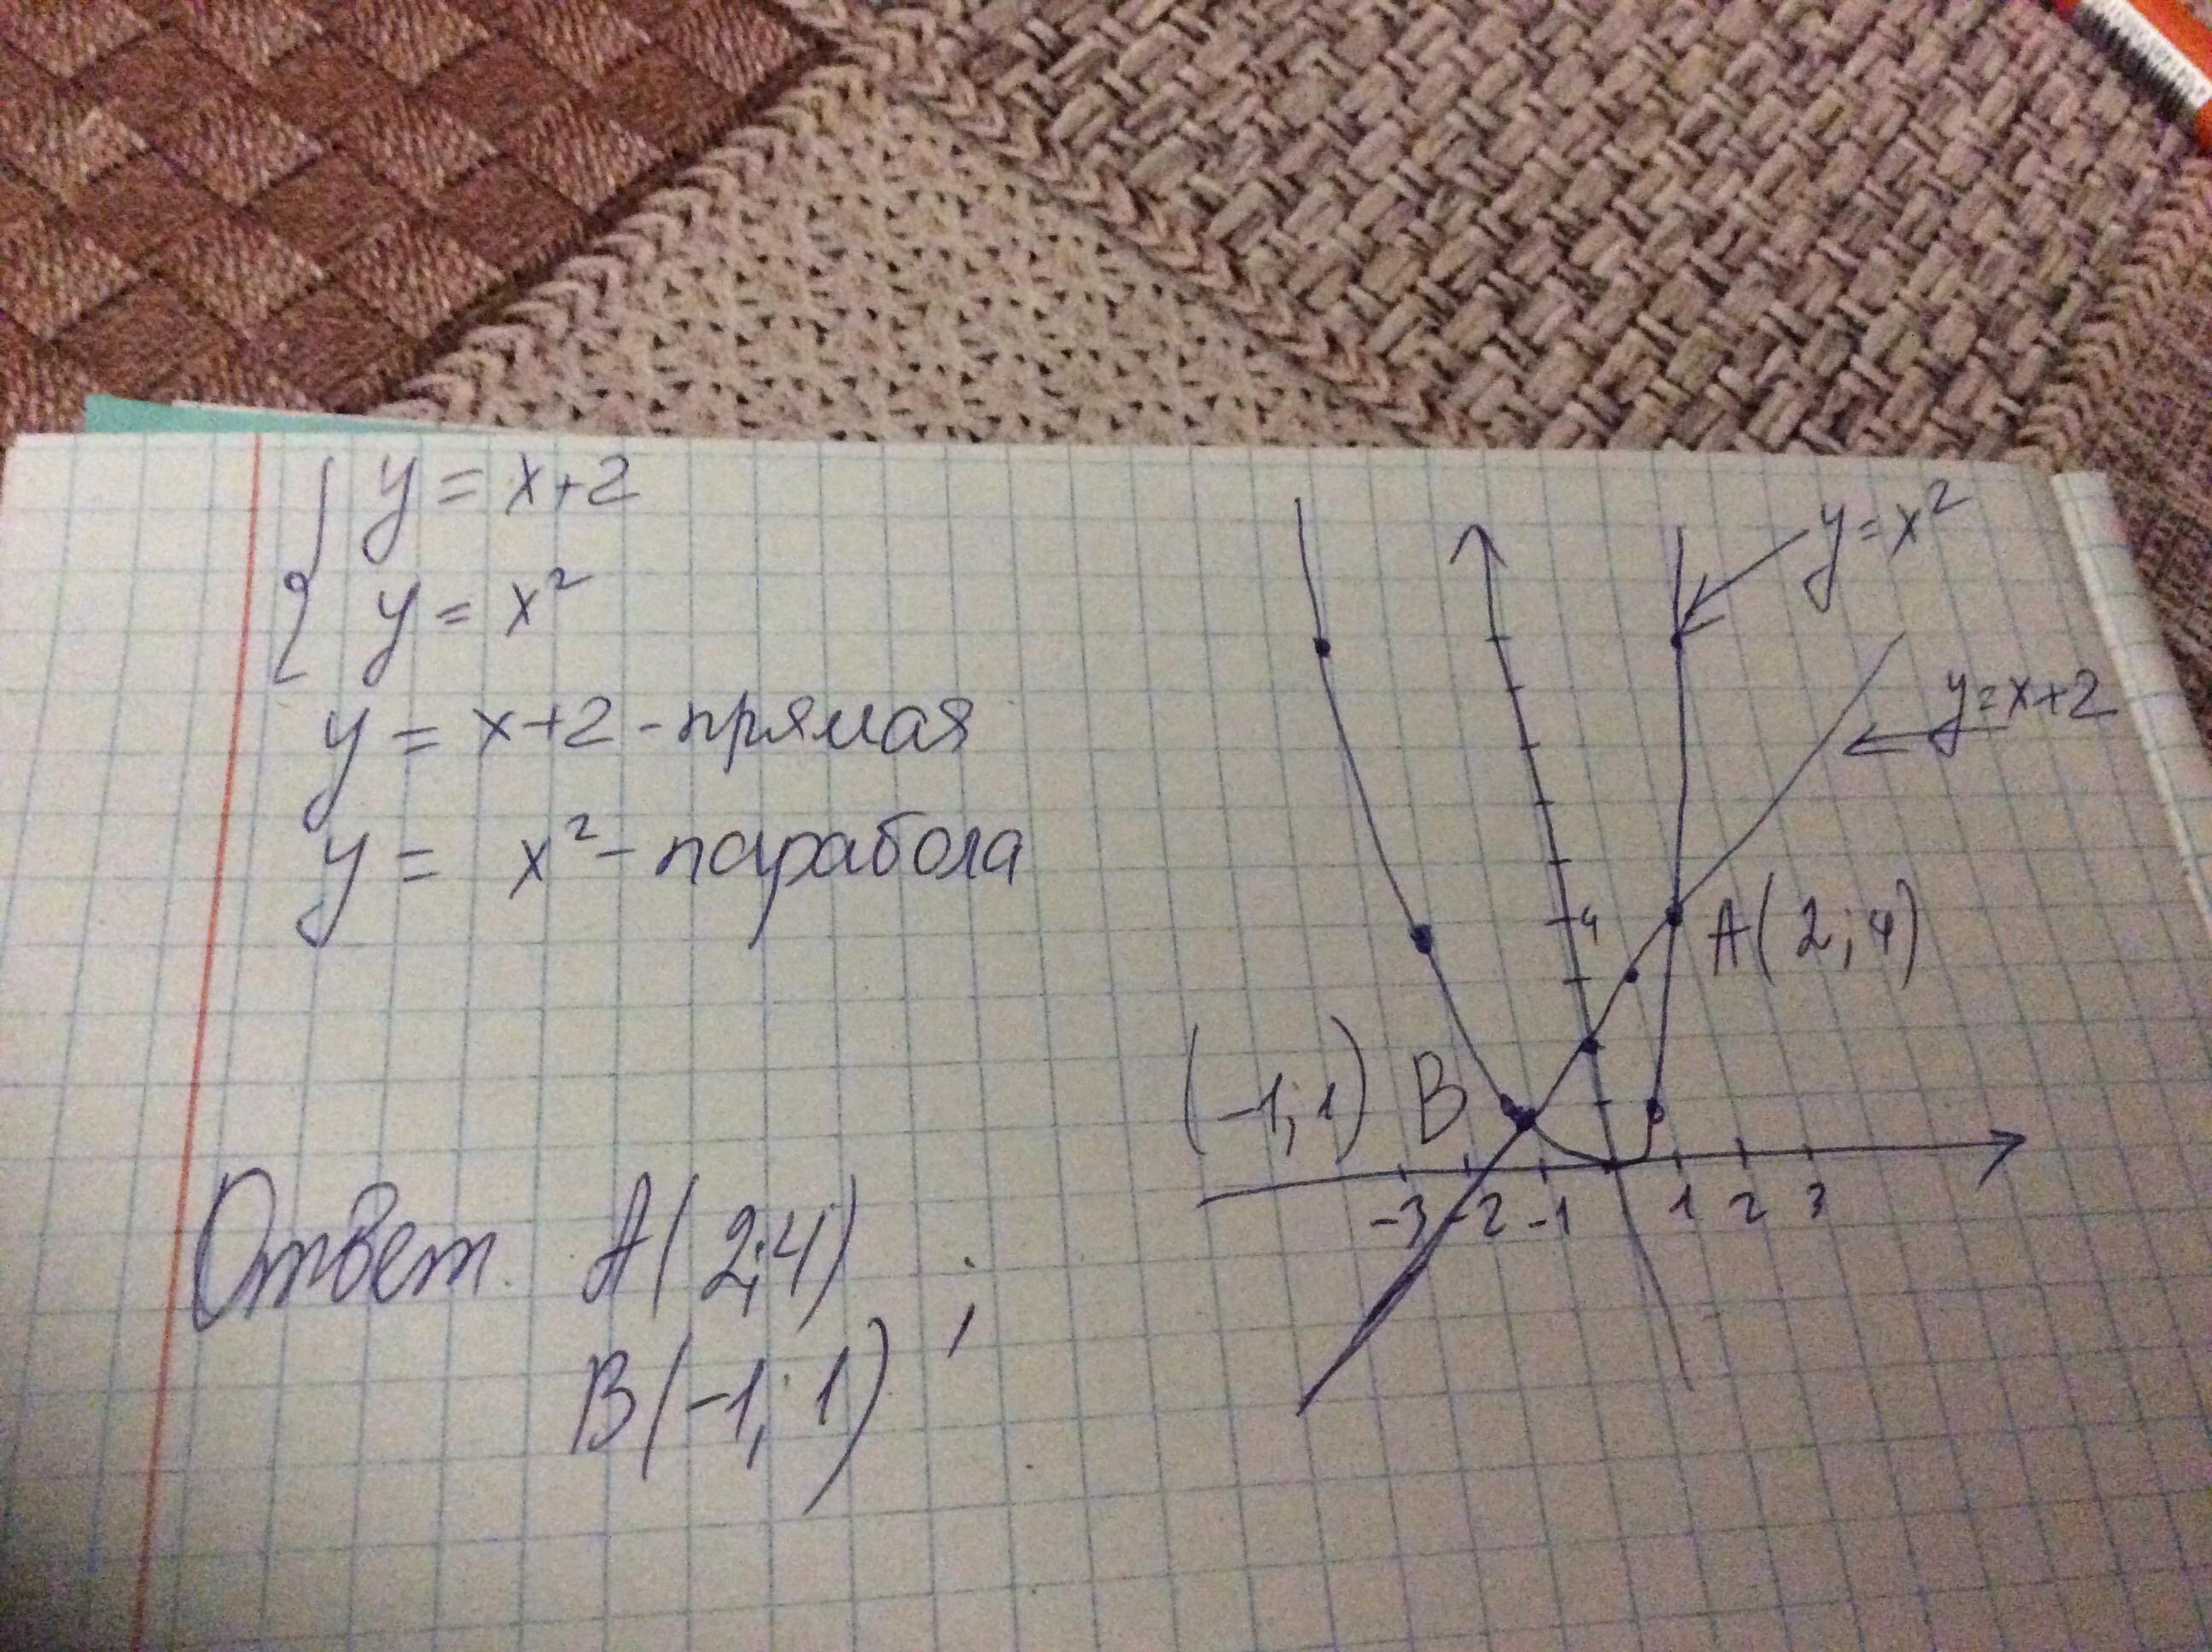 y = x+2
y = x²
y = x+2 - прямая
y = x² - парабола
Ответ. A(2;4) ;
B(-1; 1)
y=x²
y=x+2
4
A(2;4)
(-1;1) B
-3 -2 -1 1 2 3